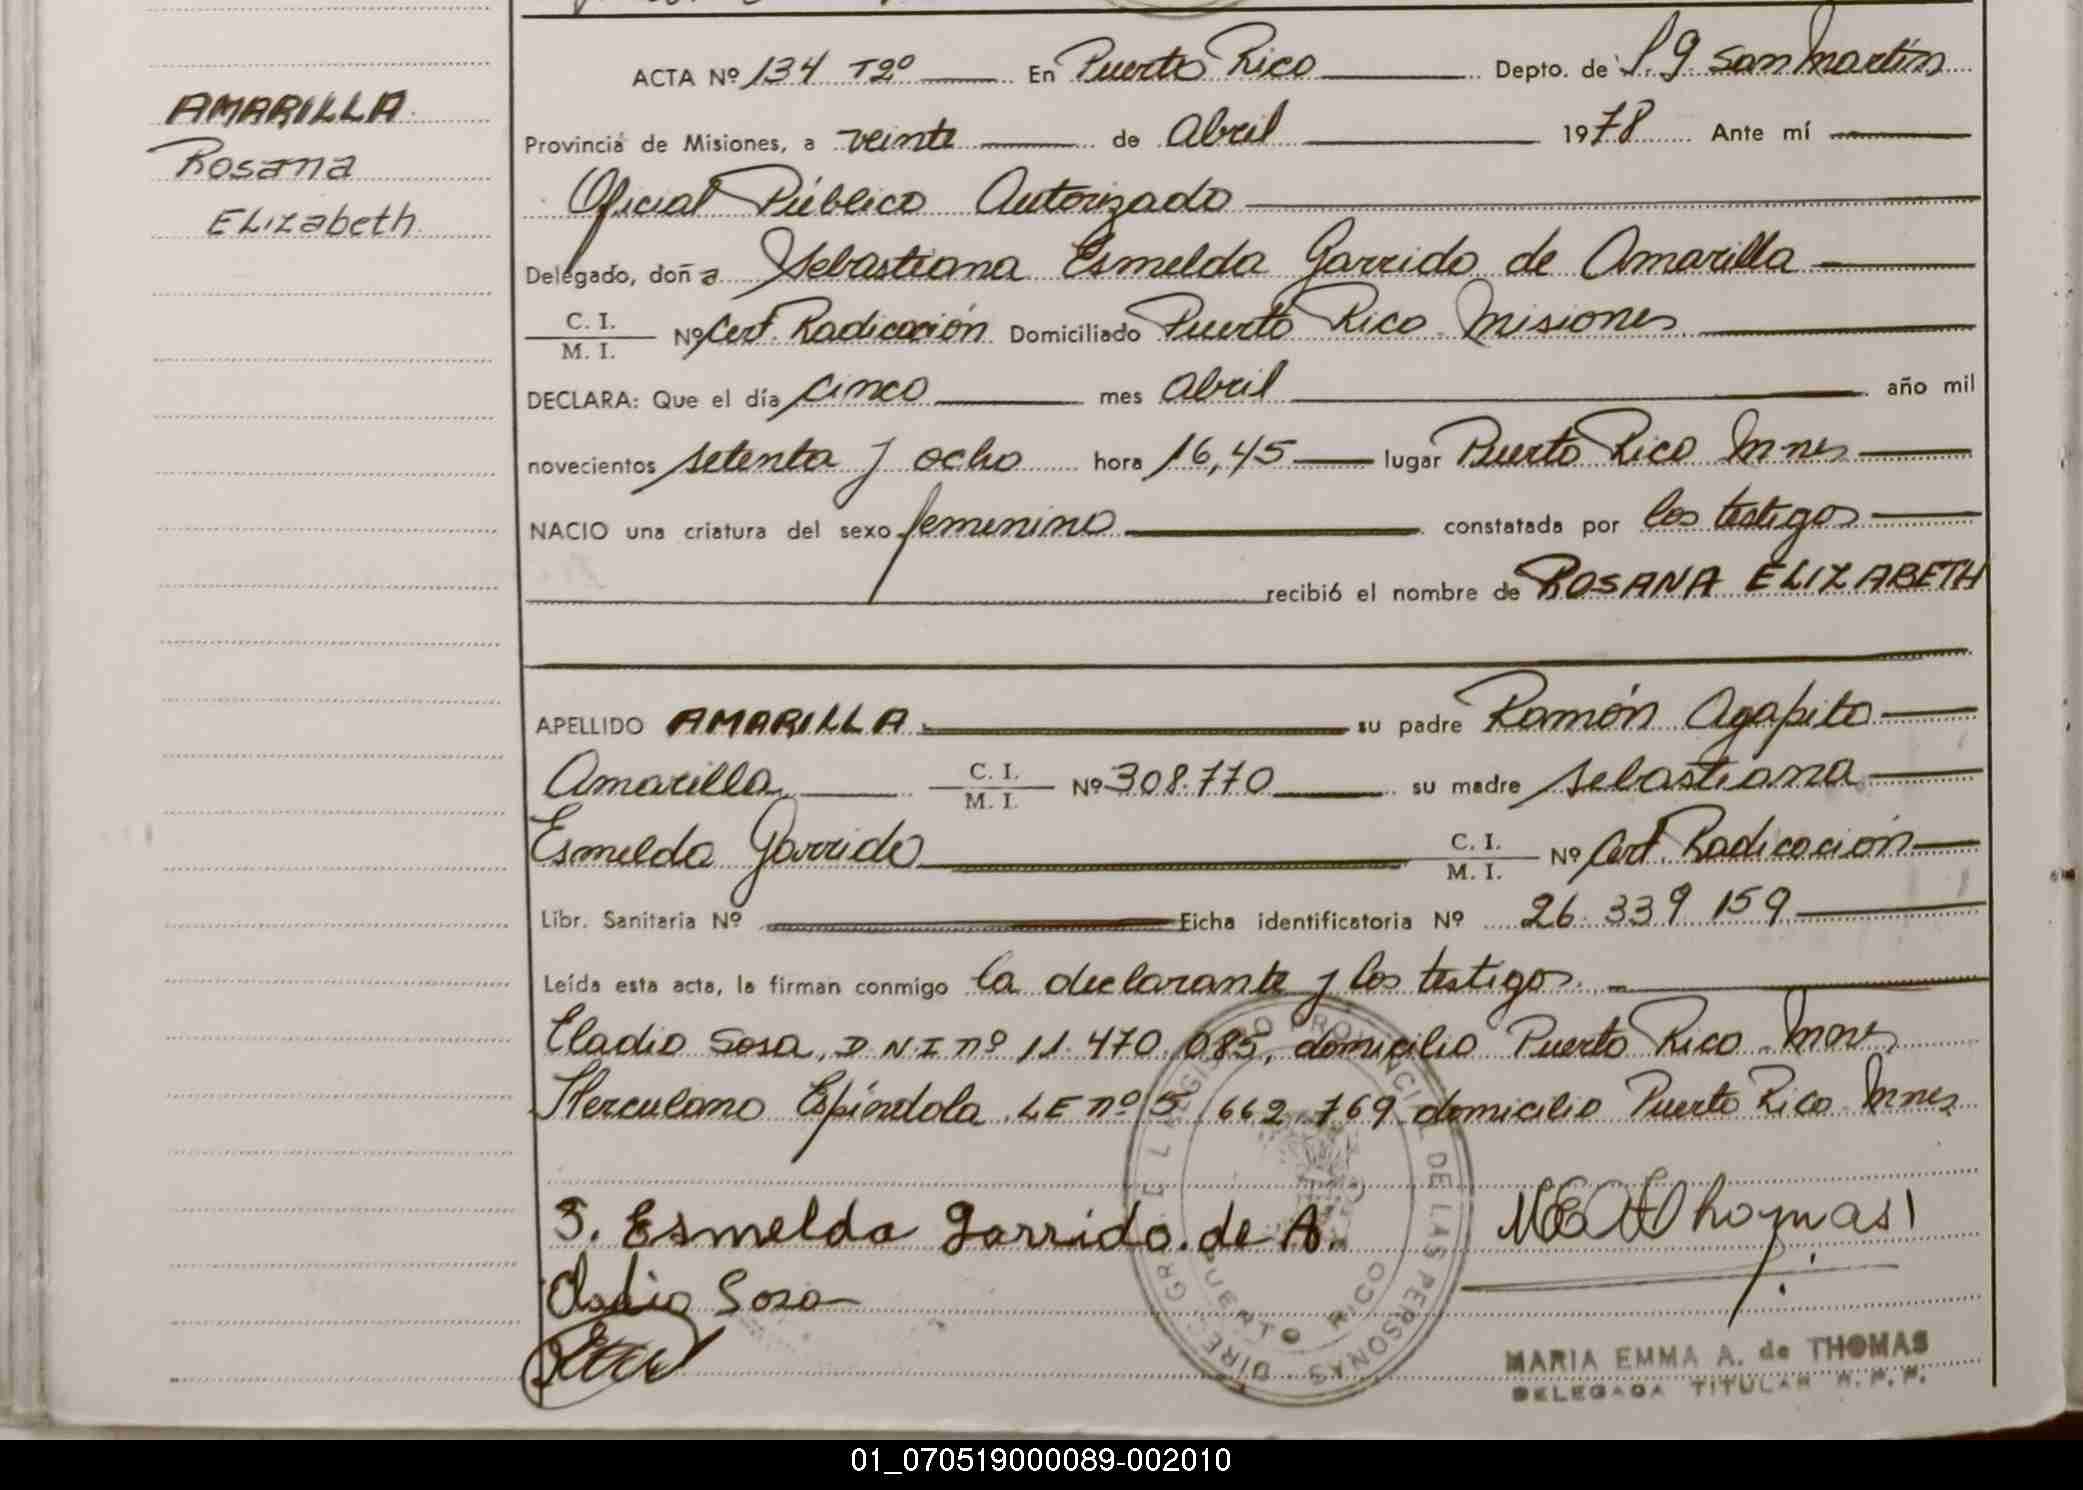 AMARILLA
Rosana
Elizabeth
ACTA Nº 134 T2º En Puerto Rico Depto. de L. G. San Martín
Provincia de Misiones, a veinte de Abril 1978 Ante mí
Oficial Público Autorizado
Delegado, doña Sebastiana Esmelda Garrido de Amarilla
C. I.
M. I. Nº Cert. Radicación Domiciliado Puerto Rico Misiones
DECLARA: Que el día cinco mes Abril año mil
novecientos setenta y ocho hora 16,45 lugar Puerto Rico Mnes
NACIO una criatura del sexo femenino constatada por los testigos
recibió el nombre de ROSANA ELIZABETH
APELLIDO AMARILLA su padre Ramón Agapito
Amarilla C. I. M. I. Nº 308.770 su madre Sebastiana
Esmelda Garrido C. I. M. I. Nº Cert. Radicación
Libr. Sanitaria Nº Ficha identificatoria Nº 26 339 159
Leída esta acta, la firman conmigo la declarante y los testigos
Eladio Sosa, D.N.I nº 11.470.085, domicilio Puerto Rico Mnes
Herculano Espíndola LE nº 5.662.769 domicilio Puerto Rico Mnes
S. Esmelda Garrido de A.
Eladio Sosa
M E A de Thomas
DIREC. GRAL. DEL REGISTRO PROVINCIAL DE LAS PERSONAS
PUERTO RICO
MARIA EMMA A. de THOMAS
DELEGADA TITULAR R.P.P.
01_070519000089-002010